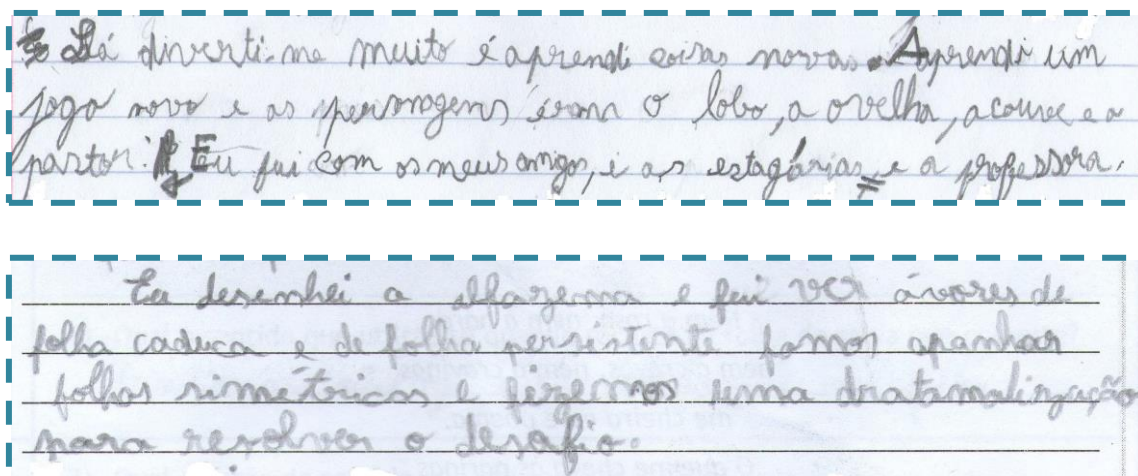 Lá diverti-me muito é aprendi coisas novas. Aprendi um
jogo novo e as personagens éram o lobo, a ovelha, a couve e a
pastor. Eu fui com os meus amigos, i as estagiárias e a professora.
Eu desenhei a alfazema e fui ver ávores de
folha caduca e de folha persistente fomos apanhar
folhas simétricas e fizemos uma dratamalização
para resolver o desafio.